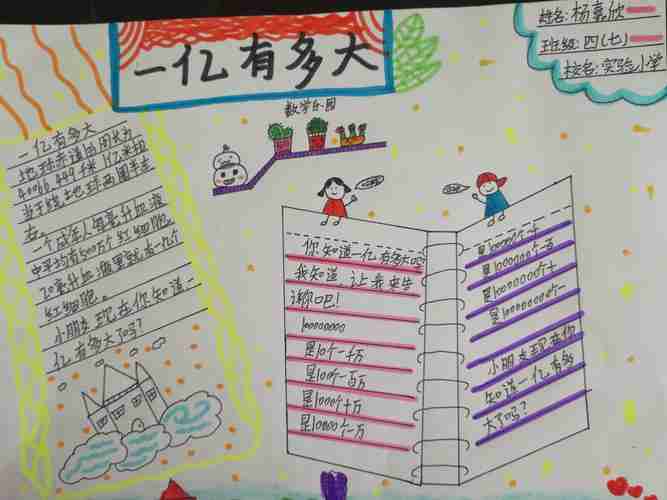 一亿有多大
姓名:杨嘉欣
班级:四(七)
校名:实验小学
数学乐园
一亿有多大
地球赤道的周长为
40066.449千米,1亿米相
当于绕土地球两圈半左
右。
一个成年人每毫升血液
中平均有500万个红细胞,
20毫升血液里就有一亿个
红细胞。
小朋友现在你知道一
亿有多大了吗?
你知道一亿有多大吗
我知道,让我来告
诉你吧!
10000000
是10个一千万
是100个一百万
是1000个十万
是10000个一万
是100000个千
是1000000个百
是10000000个十
是100000000个一
小朋友现在你
知道一亿有多
大了吗?